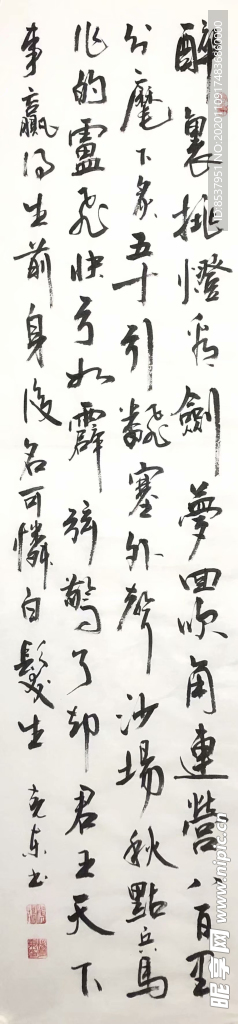 醉裏挑燈看劍夢回吹角連營八百里
分麾下炙五十弦翻塞外聲沙場秋點兵馬
作的盧飛快弓如霹弦驚了却君王天下
事贏得生前身後名可憐白髮生
克東书
昵享网 www.nipic.cn